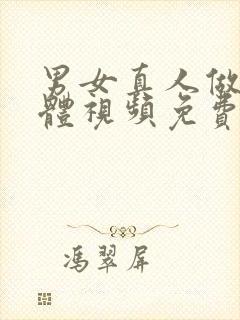 男女真人做
體視頻免費
馮翠屏